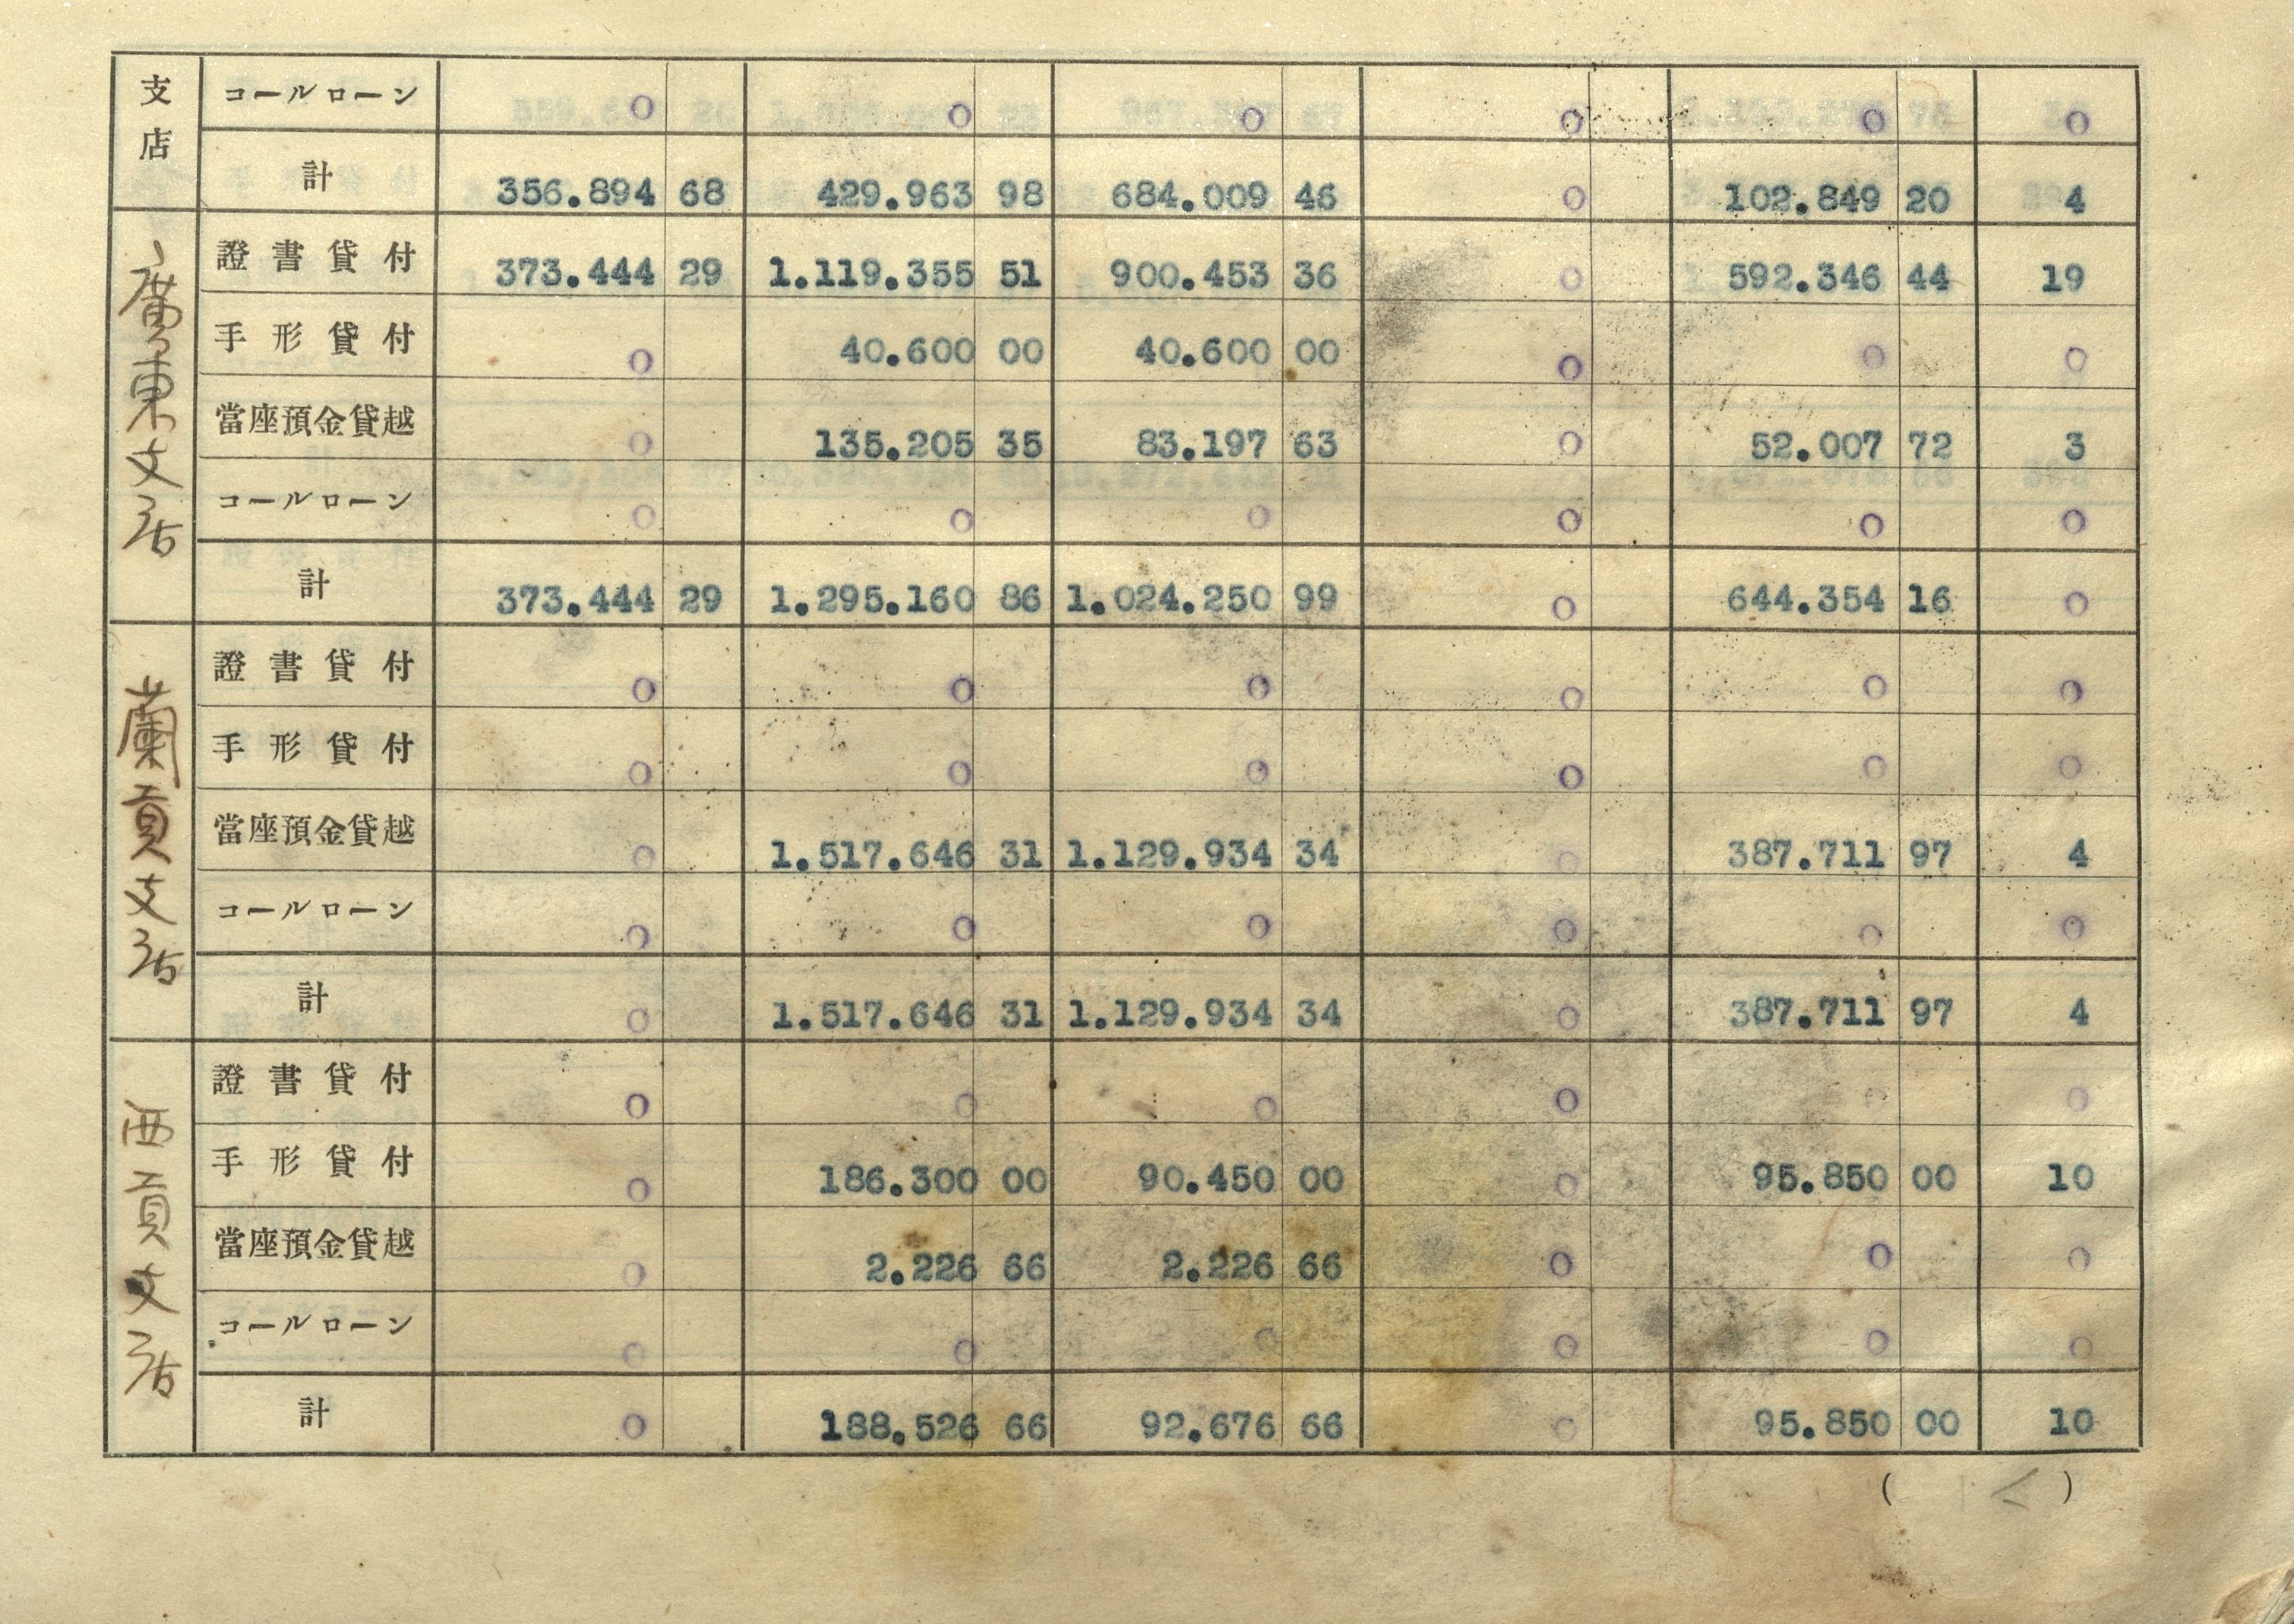 支店 コールローン ○ ○ ○ ○ ○ ○
計 356.894 68 429.963 98 684.009 46 ○ 102.849 20 4
廣東支店
證書貸付 373.444 29 1.119.355 51 900.453 36 ○ 592.346 44 19
手形貸付 ○ 40.600 00 40.600 00 ○ ○ ○
當座預金貸越 ○ 135.205 35 83.197 63 ○ 52.007 72 3
コールローン ○ ○ ○ ○ ○ ○
計 373.444 29 1.295.160 86 1.024.250 99 ○ 644.354 16 ○
蘭貢支店
證書貸付 ○ ○ ○ ○ ○ ○
手形貸付 ○ ○ ○ ○ ○ ○
當座預金貸越 ○ 1.517.646 31 1.129.934 34 ○ 387.711 97 4
コールローン ○ ○ ○ ○ ○ ○
計 ○ 1.517.646 31 1.129.934 34 ○ 387.711 97 4
西貢支店
證書貸付 ○ ○ ○ ○ ○ ○
手形貸付 ○ 186.300 00 90.450 00 ○ 95.850 00 10
當座預金貸越 ○ 2.226 66 2.226 66 ○ ○ ○
コールローン ○ ○ ○ ○ ○ ○
計 ○ 188.526 66 92.676 66 ○ 95.850 00 10